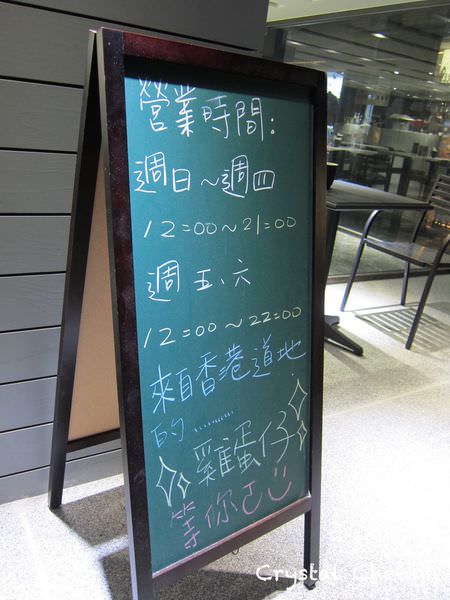 營業時間:
週日~週四
12:00~21:00
週五、六
12:00~22:00
來自香港道地
的.........
雞蛋仔
等你
Crystal